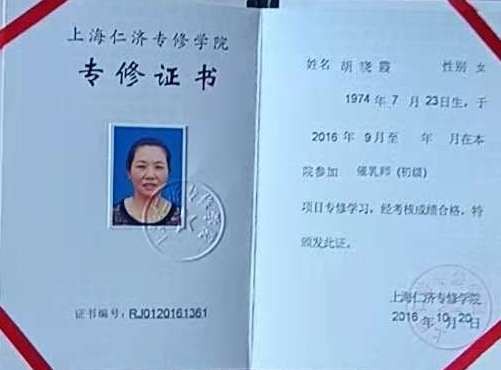 上海仁济专修学院
专修证书
证书编号：RJ012016.1361
姓名 胡晓霞 性别 女
1974 年 7 月 23日生，于
2016 年 9月至 年 月在本
院参加 催乳师 (初级)
项目专修学习，经考核成绩合格，特
颁发此证。
上海仁济专修学院
2016 年 10月 20日